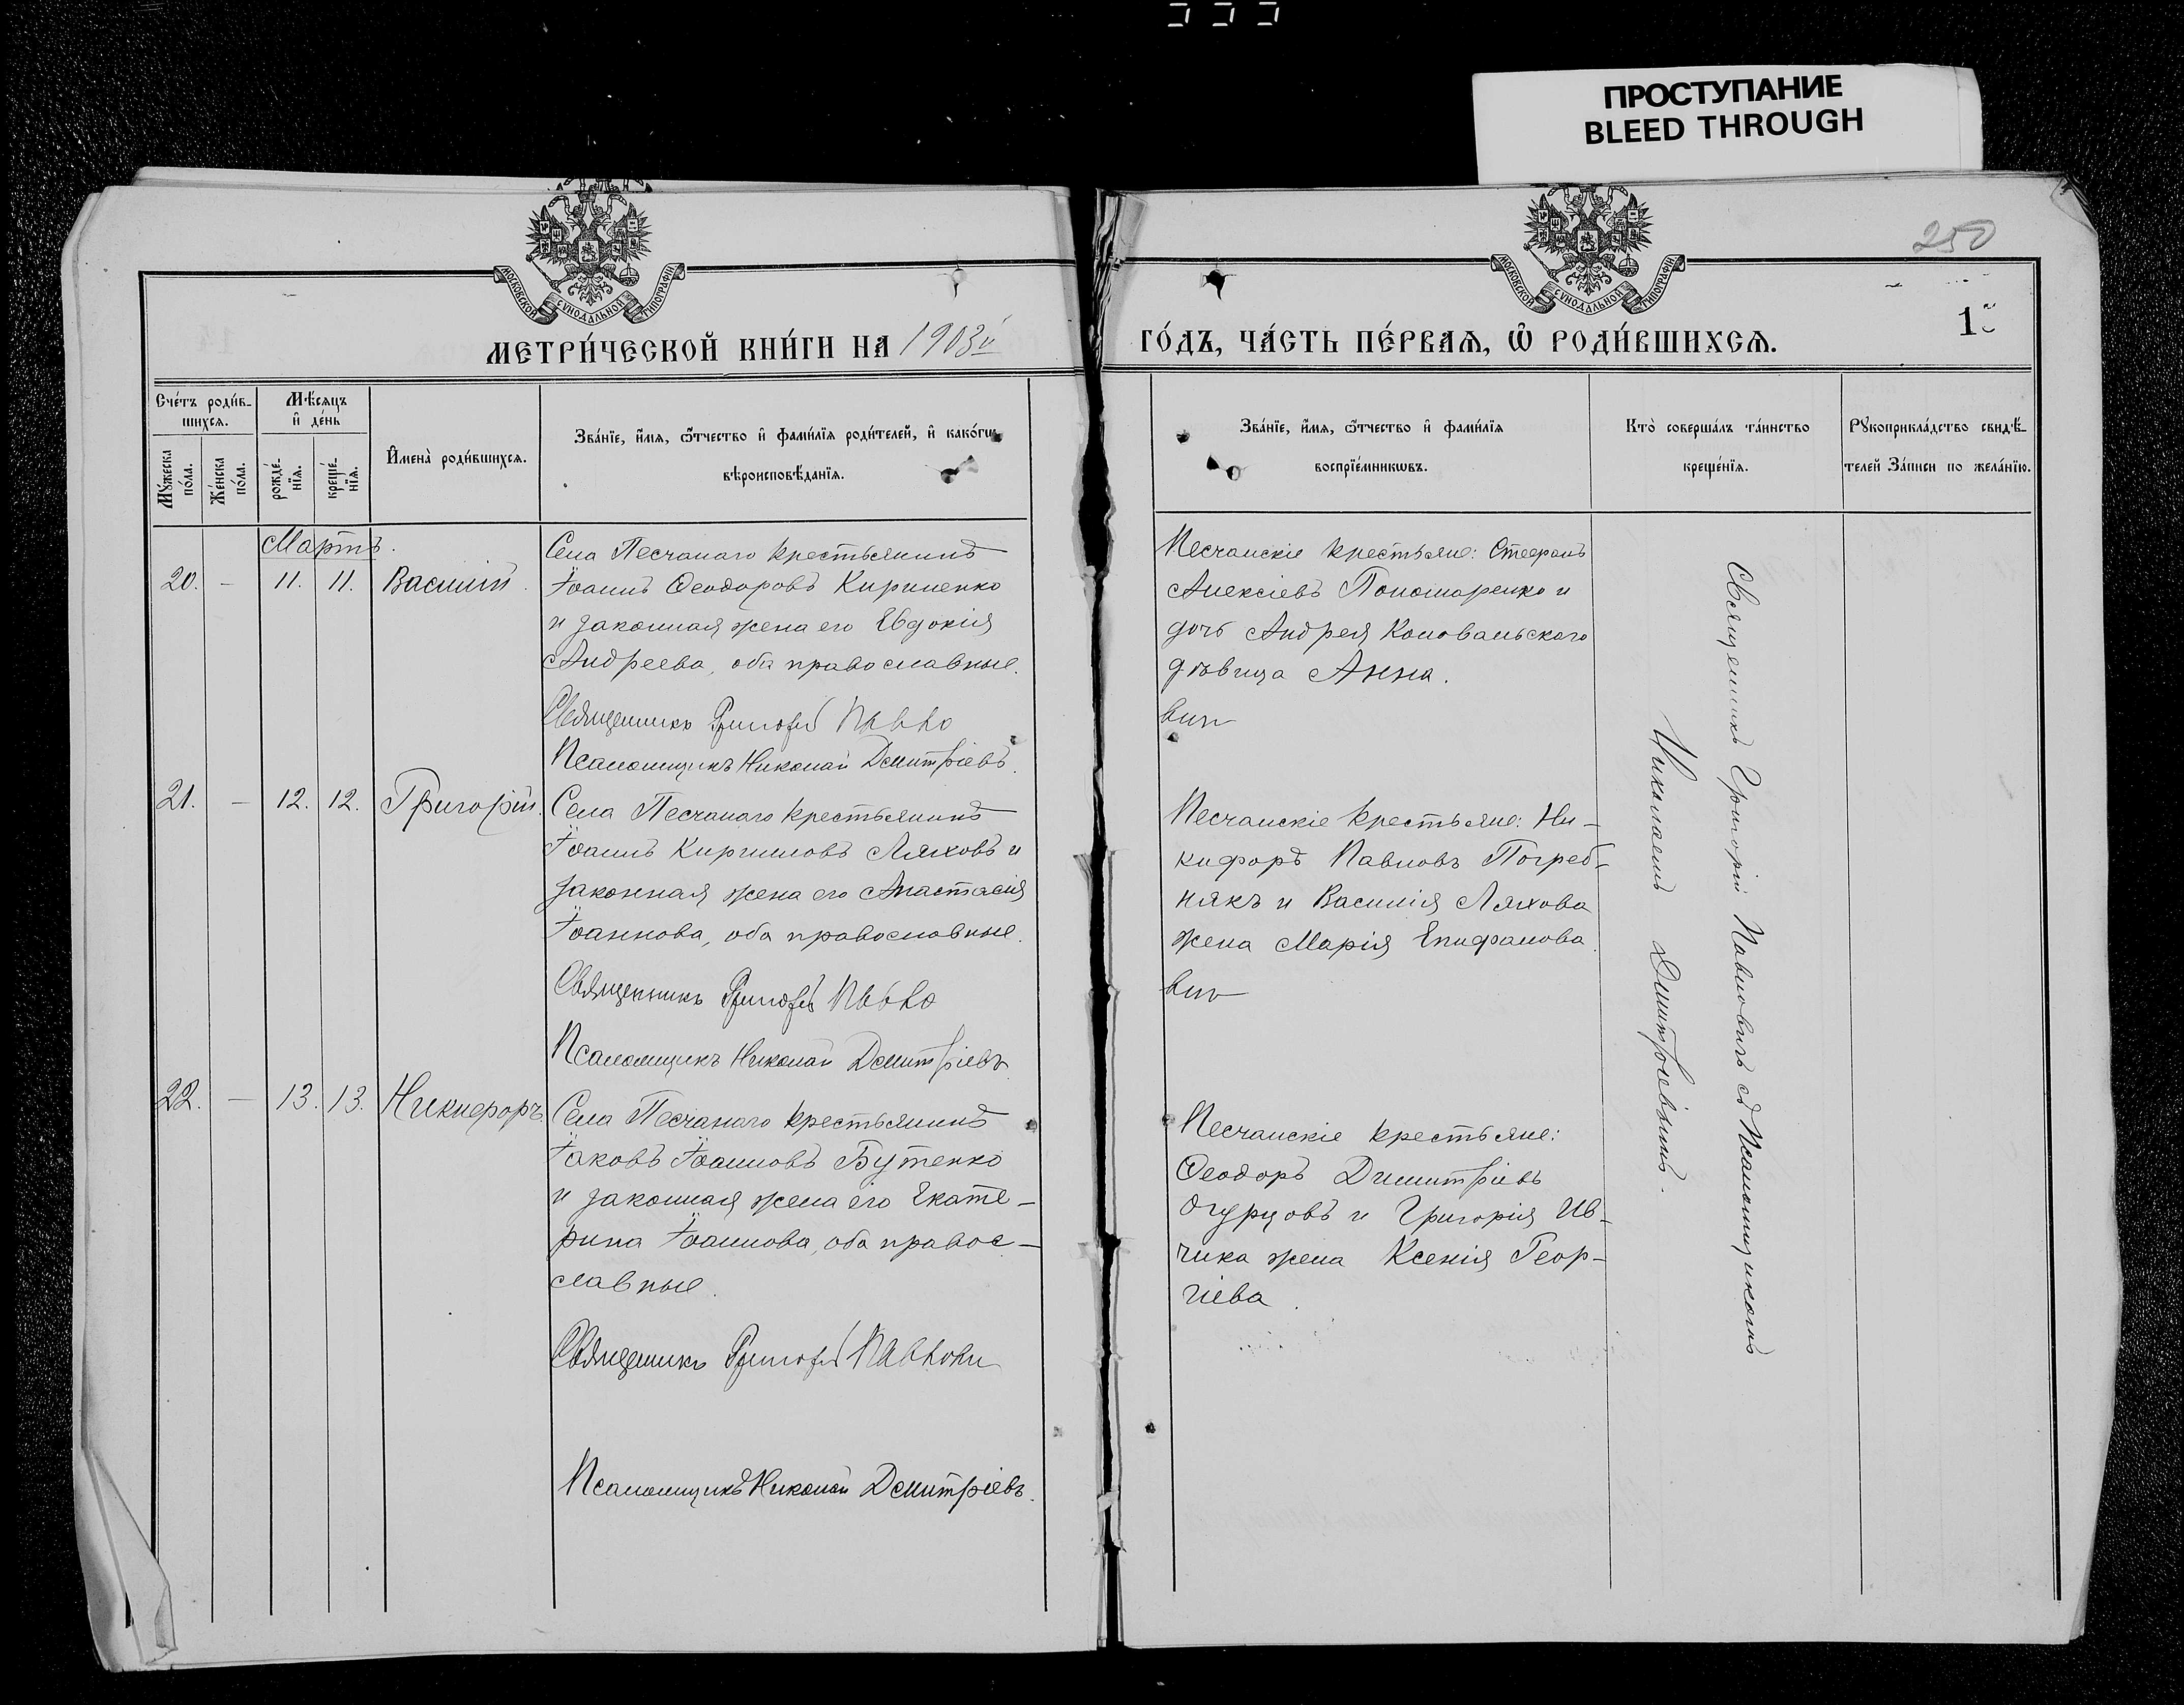 ПРОСТУПАНИЕ
BLEED THROUGH
250
МОСКОВСКОЙ СѴНОДАЛЬНОЙ ТИПОГРАФІИ
МОСКОВСКОЙ СѴНОДАЛЬНОЙ ТИПОГРАФІИ
МЕТРИ́ЧЕСКОЙ КНИ́ГИ НА 1903й
ГО́ДЪ, ЧА́СТЬ ПЕ́РВАѦ, Ѡ҆ РОДИ́ВШИХСѦ.
Сче́тъ роди́в-
шихсѧ.
Мꙋ́жеска по́ла.
Же́нска по́ла.
Мѣ́сѧцъ
и҆ де́нь
рожде́-
нїѧ.
креще́-
нїѧ.
И҆мена̀ роди́вшихсѧ.
Зва́нїе, и҆́мѧ, ѻ҆́тчество и҆ фами́лїѧ роди́телей, и҆ како́гѡ
вѣроисповѣ́данїѧ.
Зва́нїе, и҆́мѧ, ѻ҆́тчество и҆ фами́лїѧ
воспрїе́мникѡвъ.
Кто̀ соверша́лъ та́инство
креще́нїѧ.
Рꙋкоприкла́дство свидѣ́-
телей За́писи по жела́нїю.
Мартъ.
20. — 11. 11. Василій.
Села Песчанаго крестьянинъ
Іоаннъ Ѳеодоровъ Кириленко
и законная жена его Евдокія
Андреева, оба православные.
Священникъ Григорій
Псаломщикъ Николай Дмитріевъ.
Песчанскіе крестьяне: Стефанъ
Алексіевъ Пономаренко и
дочь Андрея Коновальского
дѣвица Анна.
21. — 12. 12. Григорій.
Села Песчанаго крестьянинъ
Іоаннъ Кирилловъ Ляховъ и
законная жена его Анастасія
Іоаннова, оба православные.
Священникъ Григорій
Псаломщикъ Николай Дмитріевъ
Песчанскіе крестьяне: Ни-
кифоръ Павловъ Погреб-
някъ и Василія Ляхова
жена Марія Епифанова.
22. — 13. 13. Никифоръ.
Села Песчанаго крестьянинъ
Іаковъ Іоанновъ Бутенко
и законная жена его Екате-
рина Іоаннова, оба правос-
лавные.
Священникъ Григорій
Псаломщикъ Николай Дмитріевъ.
Песчанскіе крестьяне:
Ѳеодоръ Димитріевъ
Огурцовъ и Григорія Ив-
чика жена Ксенія Геор-
гіева.
Священникъ Григорій Павловичъ съ Псаломщикомъ
Николаемъ Дмитріевымъ.